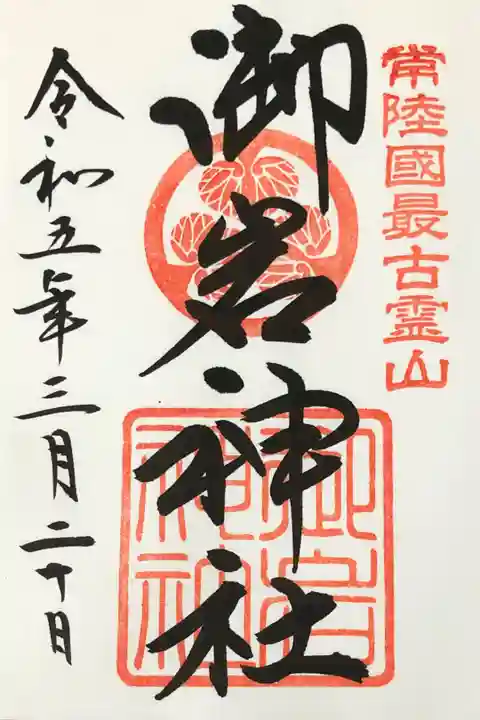 常陸國最古霊山
御岩神社
御岩
神社
令和五年三月二十日